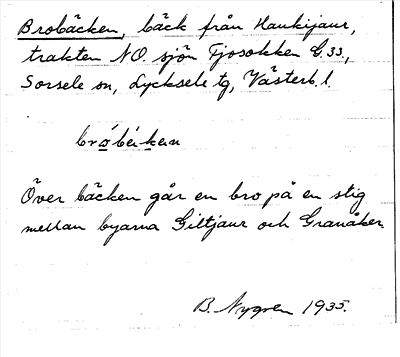 Brobäcken, bäck från Haukijaur,
trakten NO. sjön Tjosokken E.33.,
Sorsele sn, Lycksele tg, Västerb. l.
brǫ́bèḱen
Över bäcken går en bro på en stig
mellan byarna Giltjaur och Granåker.
B. Nygren 1935.